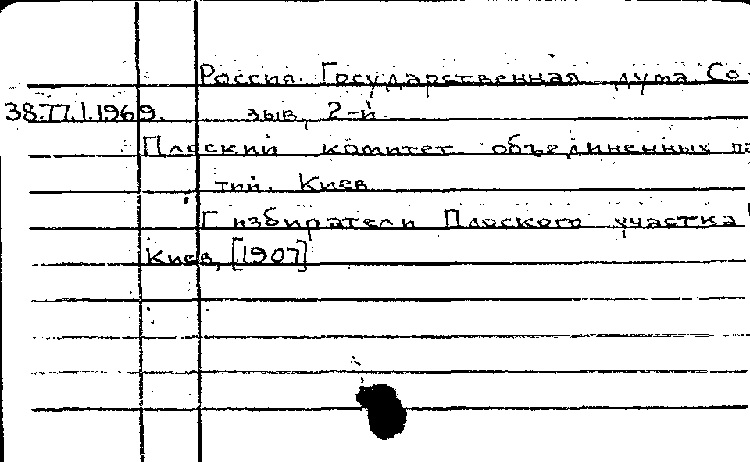 Россия. Государственная дума. Со
38.77.1.1969. зыв, 2-й
Плоский комитет объединенных па
тий. Киев
Г избиратели Плоского участка!
Киев, [1907]